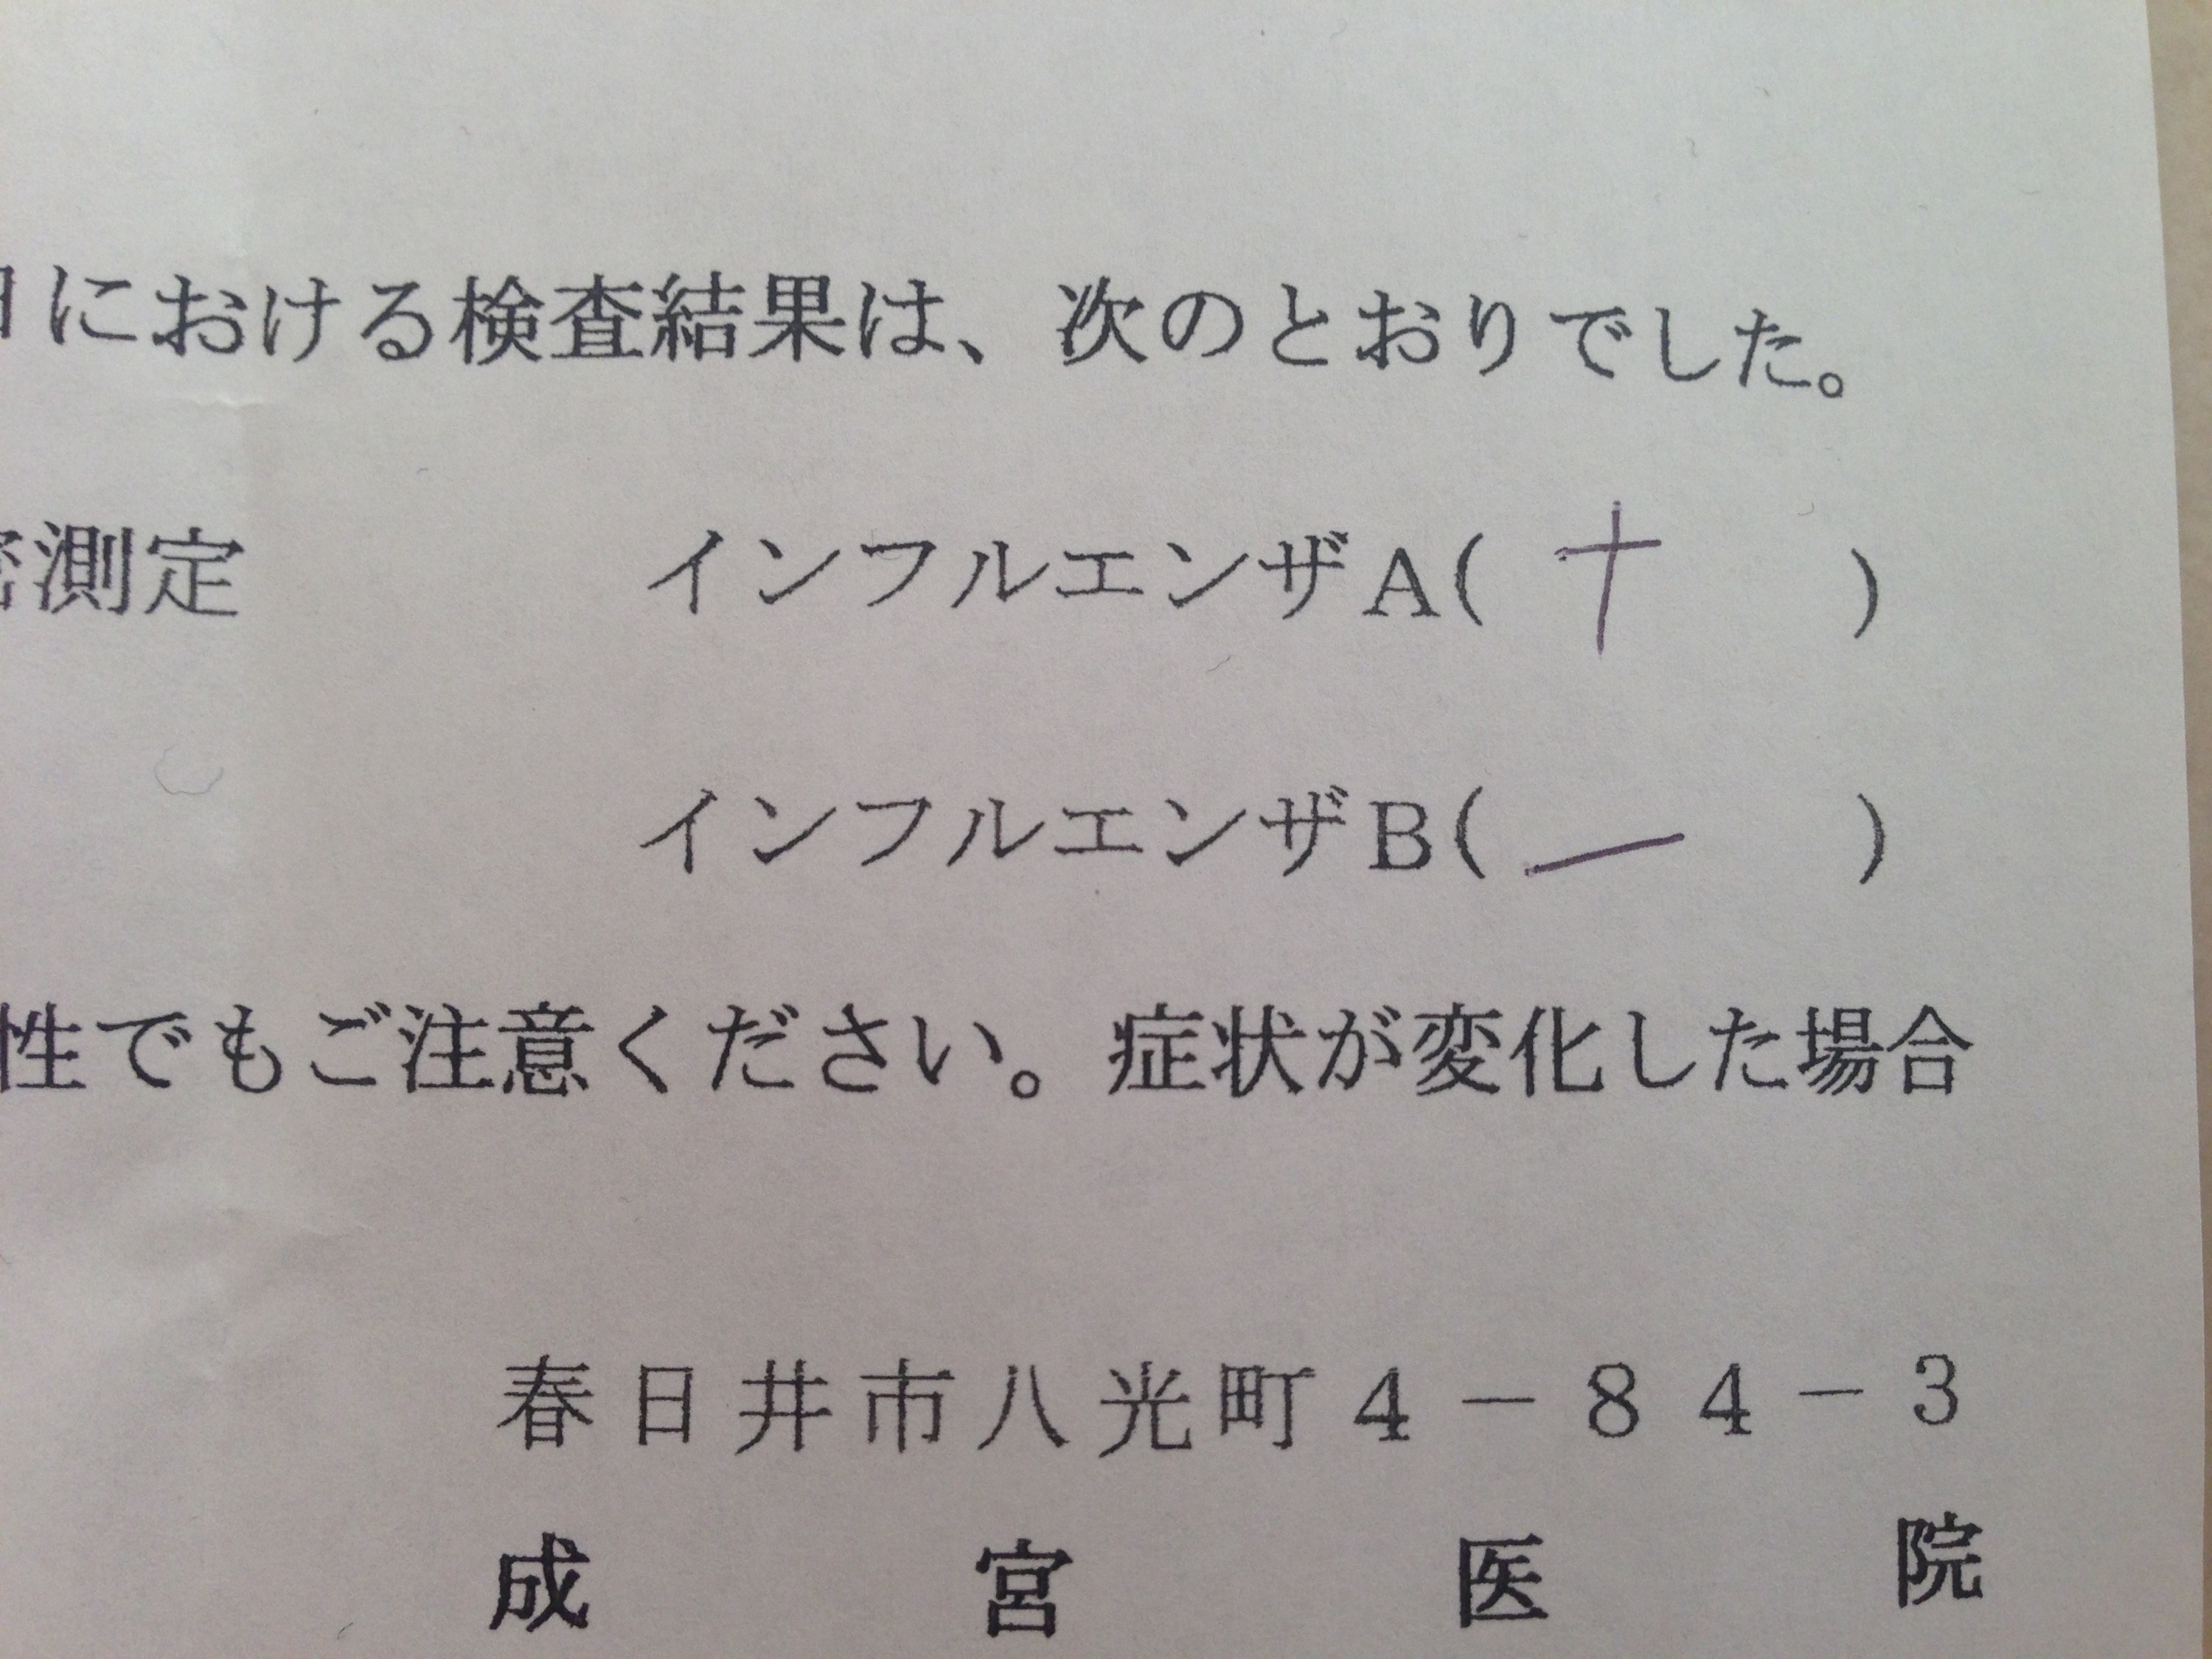 における検査結果は、次のとおりでした。
測定 インフルエンザA( + )
インフルエンザB( − )
性でもご注意ください。症状が変化した場合
春日井市八光町4−84−3
成宮医院